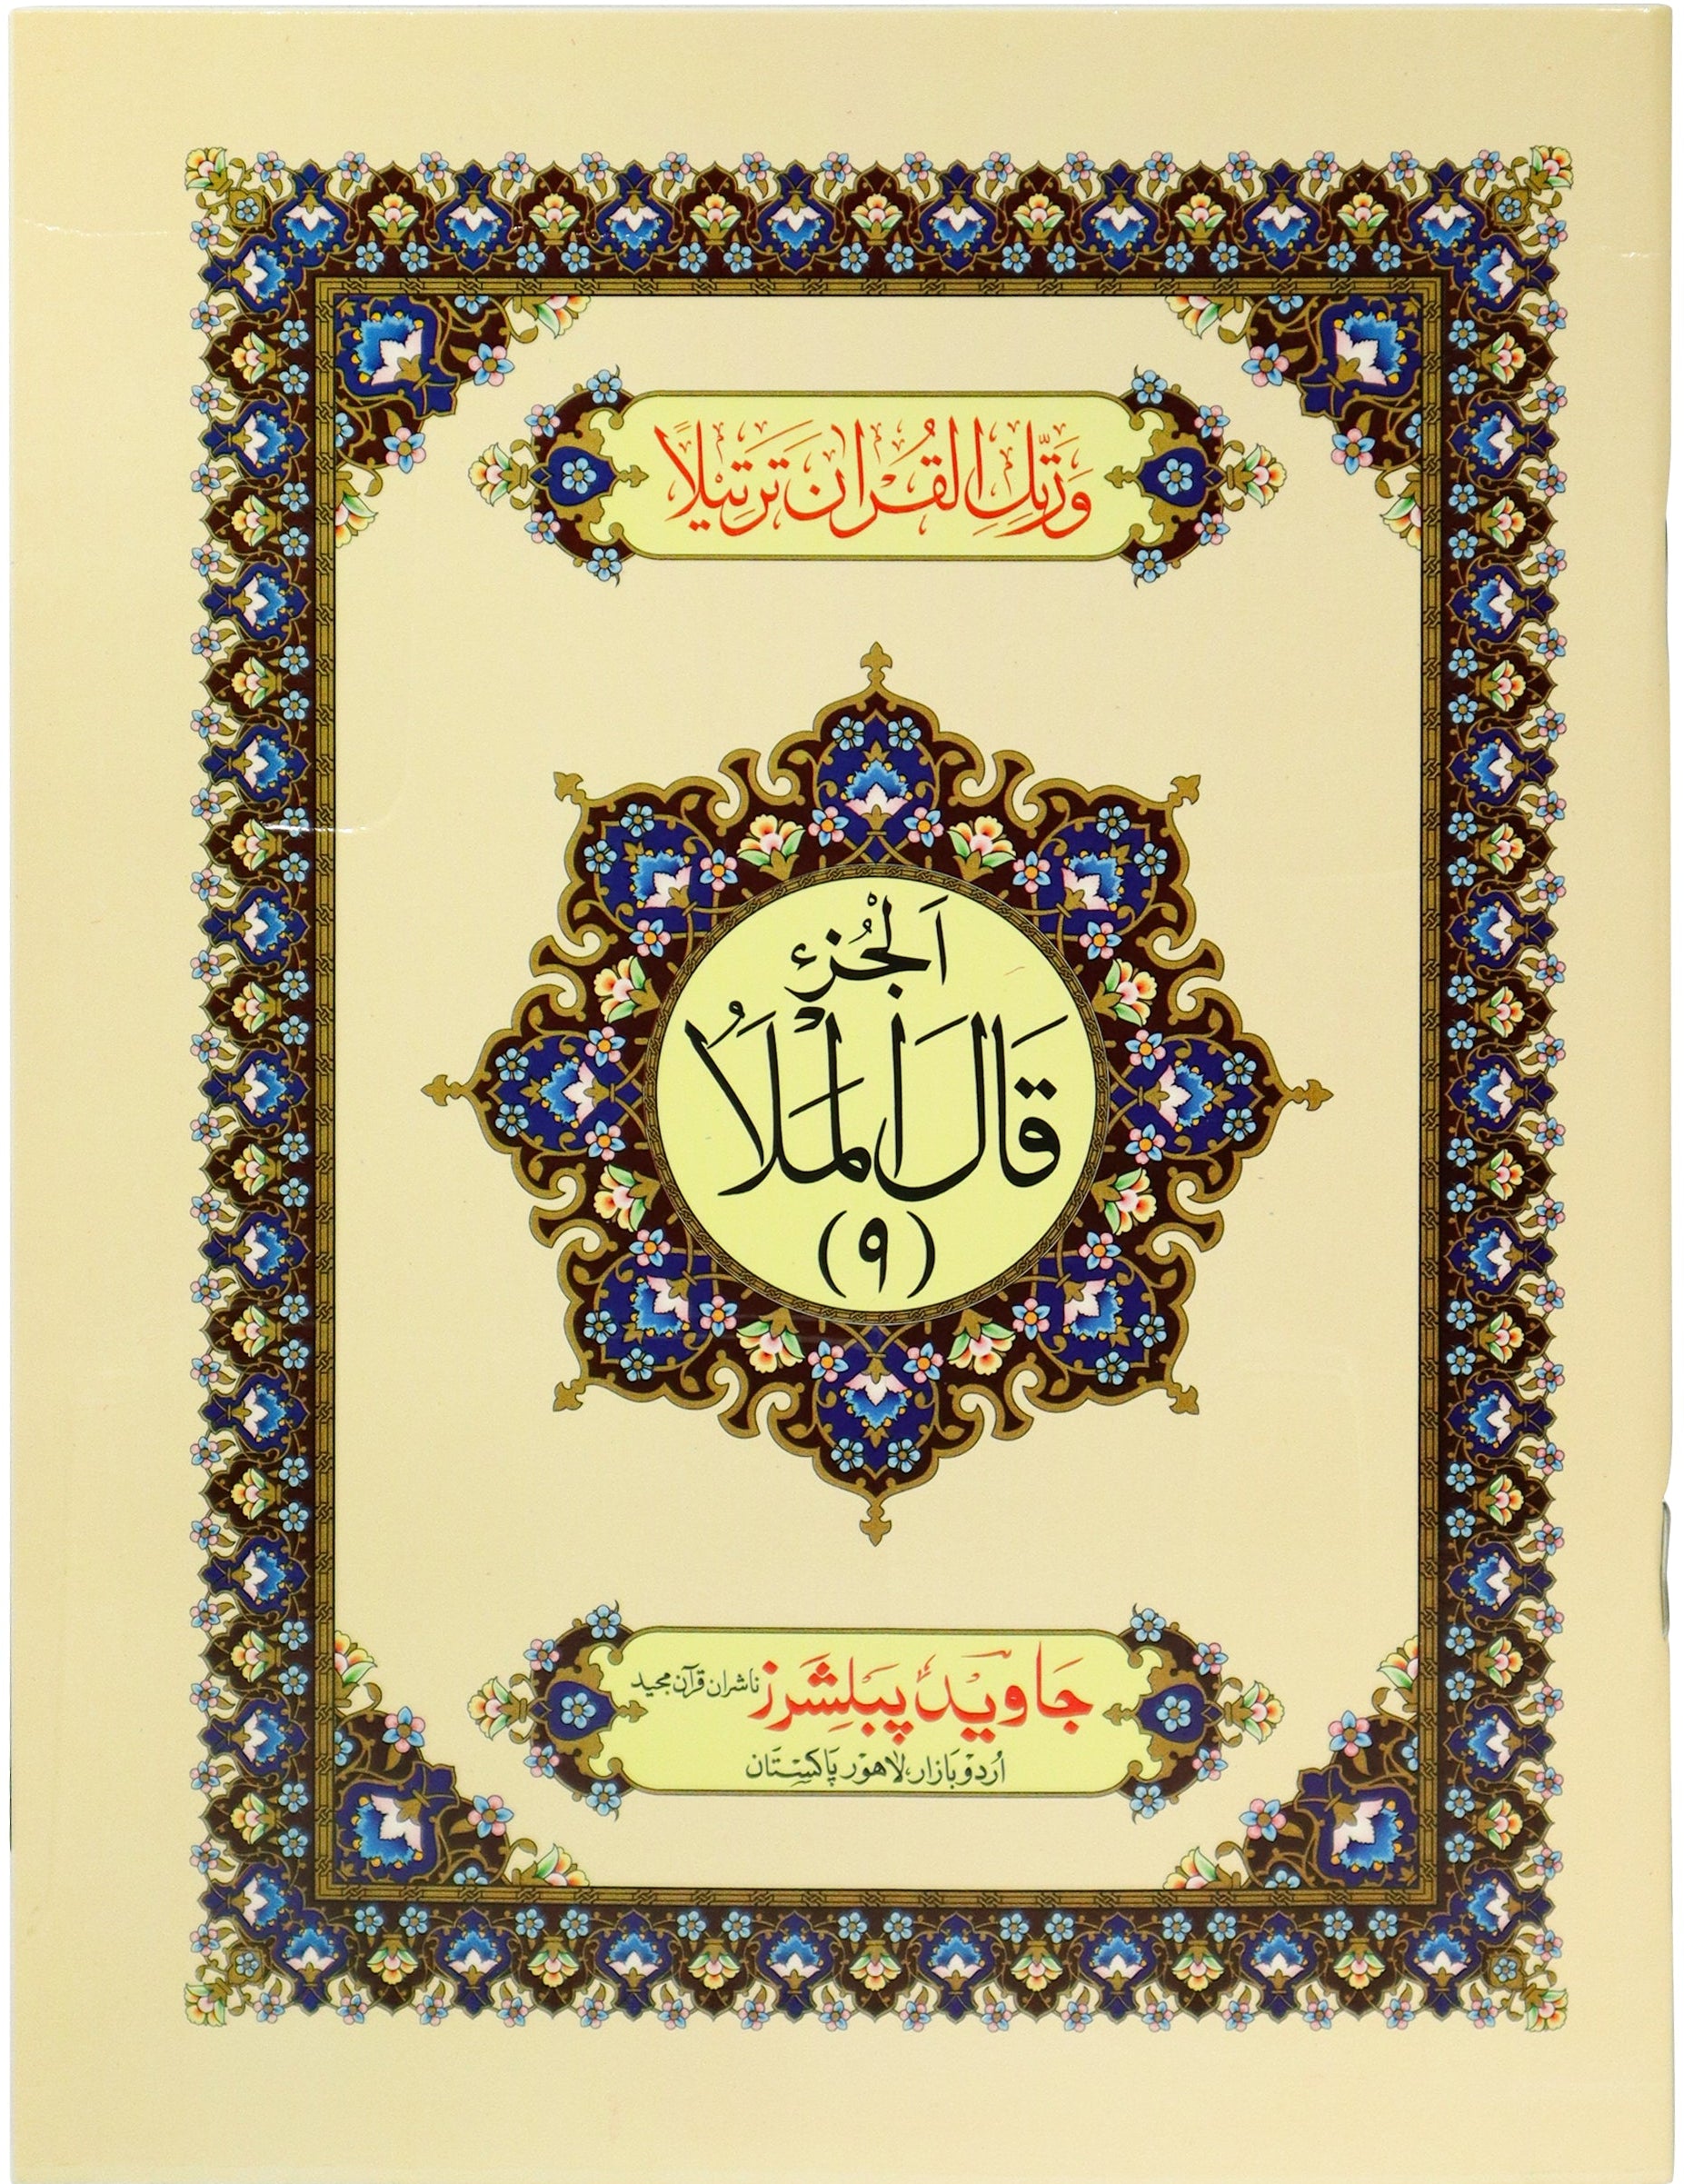 وَرَتِّلِ الْقُرْاٰنَ تَرْتِيْلًا
اَلْجُزْءُ
قَالَ الْمَلَاُ
(۹)
جَاوِيْد پَبلِشَرز ناشران قرآن مجید
اُردُو بَازار، لاهَور پَاکِسْتَان